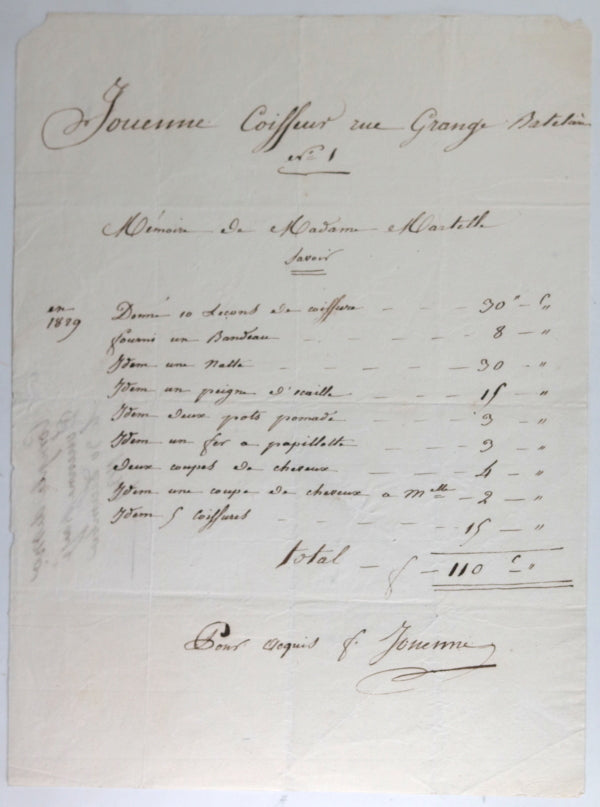 Jouenne Coiffeur rue Grange Batelière
N° 1
Mémoire de Madame Martelle
Savoir
en 1829
Donné 10 Leçons de coiffure — — — 30 " C "
fourni un Bandeau — — — — — 8 — "
Idem une Natte — — — — — 30 — "
Idem un peigne d'écaille — — — — 15 — "
Idem deux pots pomade — — — — 3 — "
Idem un fer a papillotte — — — — 3 — "
deux coupes de cheveux — — — — 4 — "
Idem une coupe de cheveux a Melle — 2 — "
Idem 5 coiffures — — — — — 15 — "
total — f — 110 C "
Pour acquis f. Jouenne